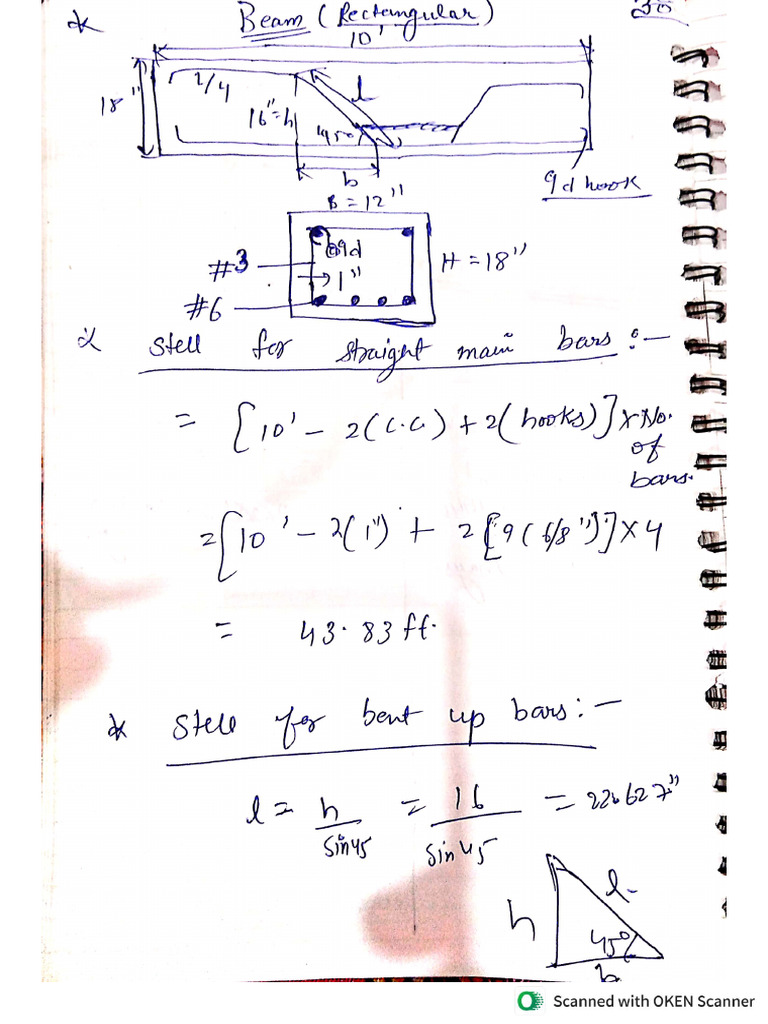 * Beam (Rectangular)
10'
18"
l/4
16"=h
l
45°
b
9d hook
B = 12"
9d
#3
1"
H = 18"
#6
* Stell for straight main bars :-
= [10' - 2(C.C) + 2(hooks)] x No. of bars.
= [10' - 2(1") + 2[9(6/8")] x 4
= 43.83 ft.
* Stell for bent up bars :-
l = h/sin45 = 16/sin45 = 22.627"
h
l
45°
b
Scanned with OKEN Scanner